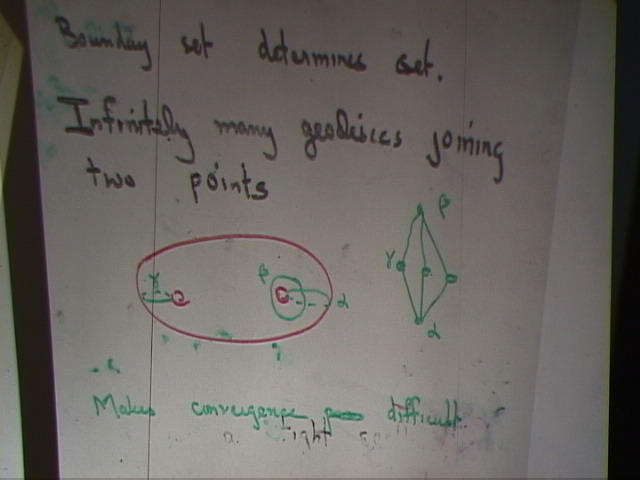 Boundary set determines set.
Infinitely many geodesics joining
two points
β
γ β
γ α
α
Makes convergence difficult.
tight